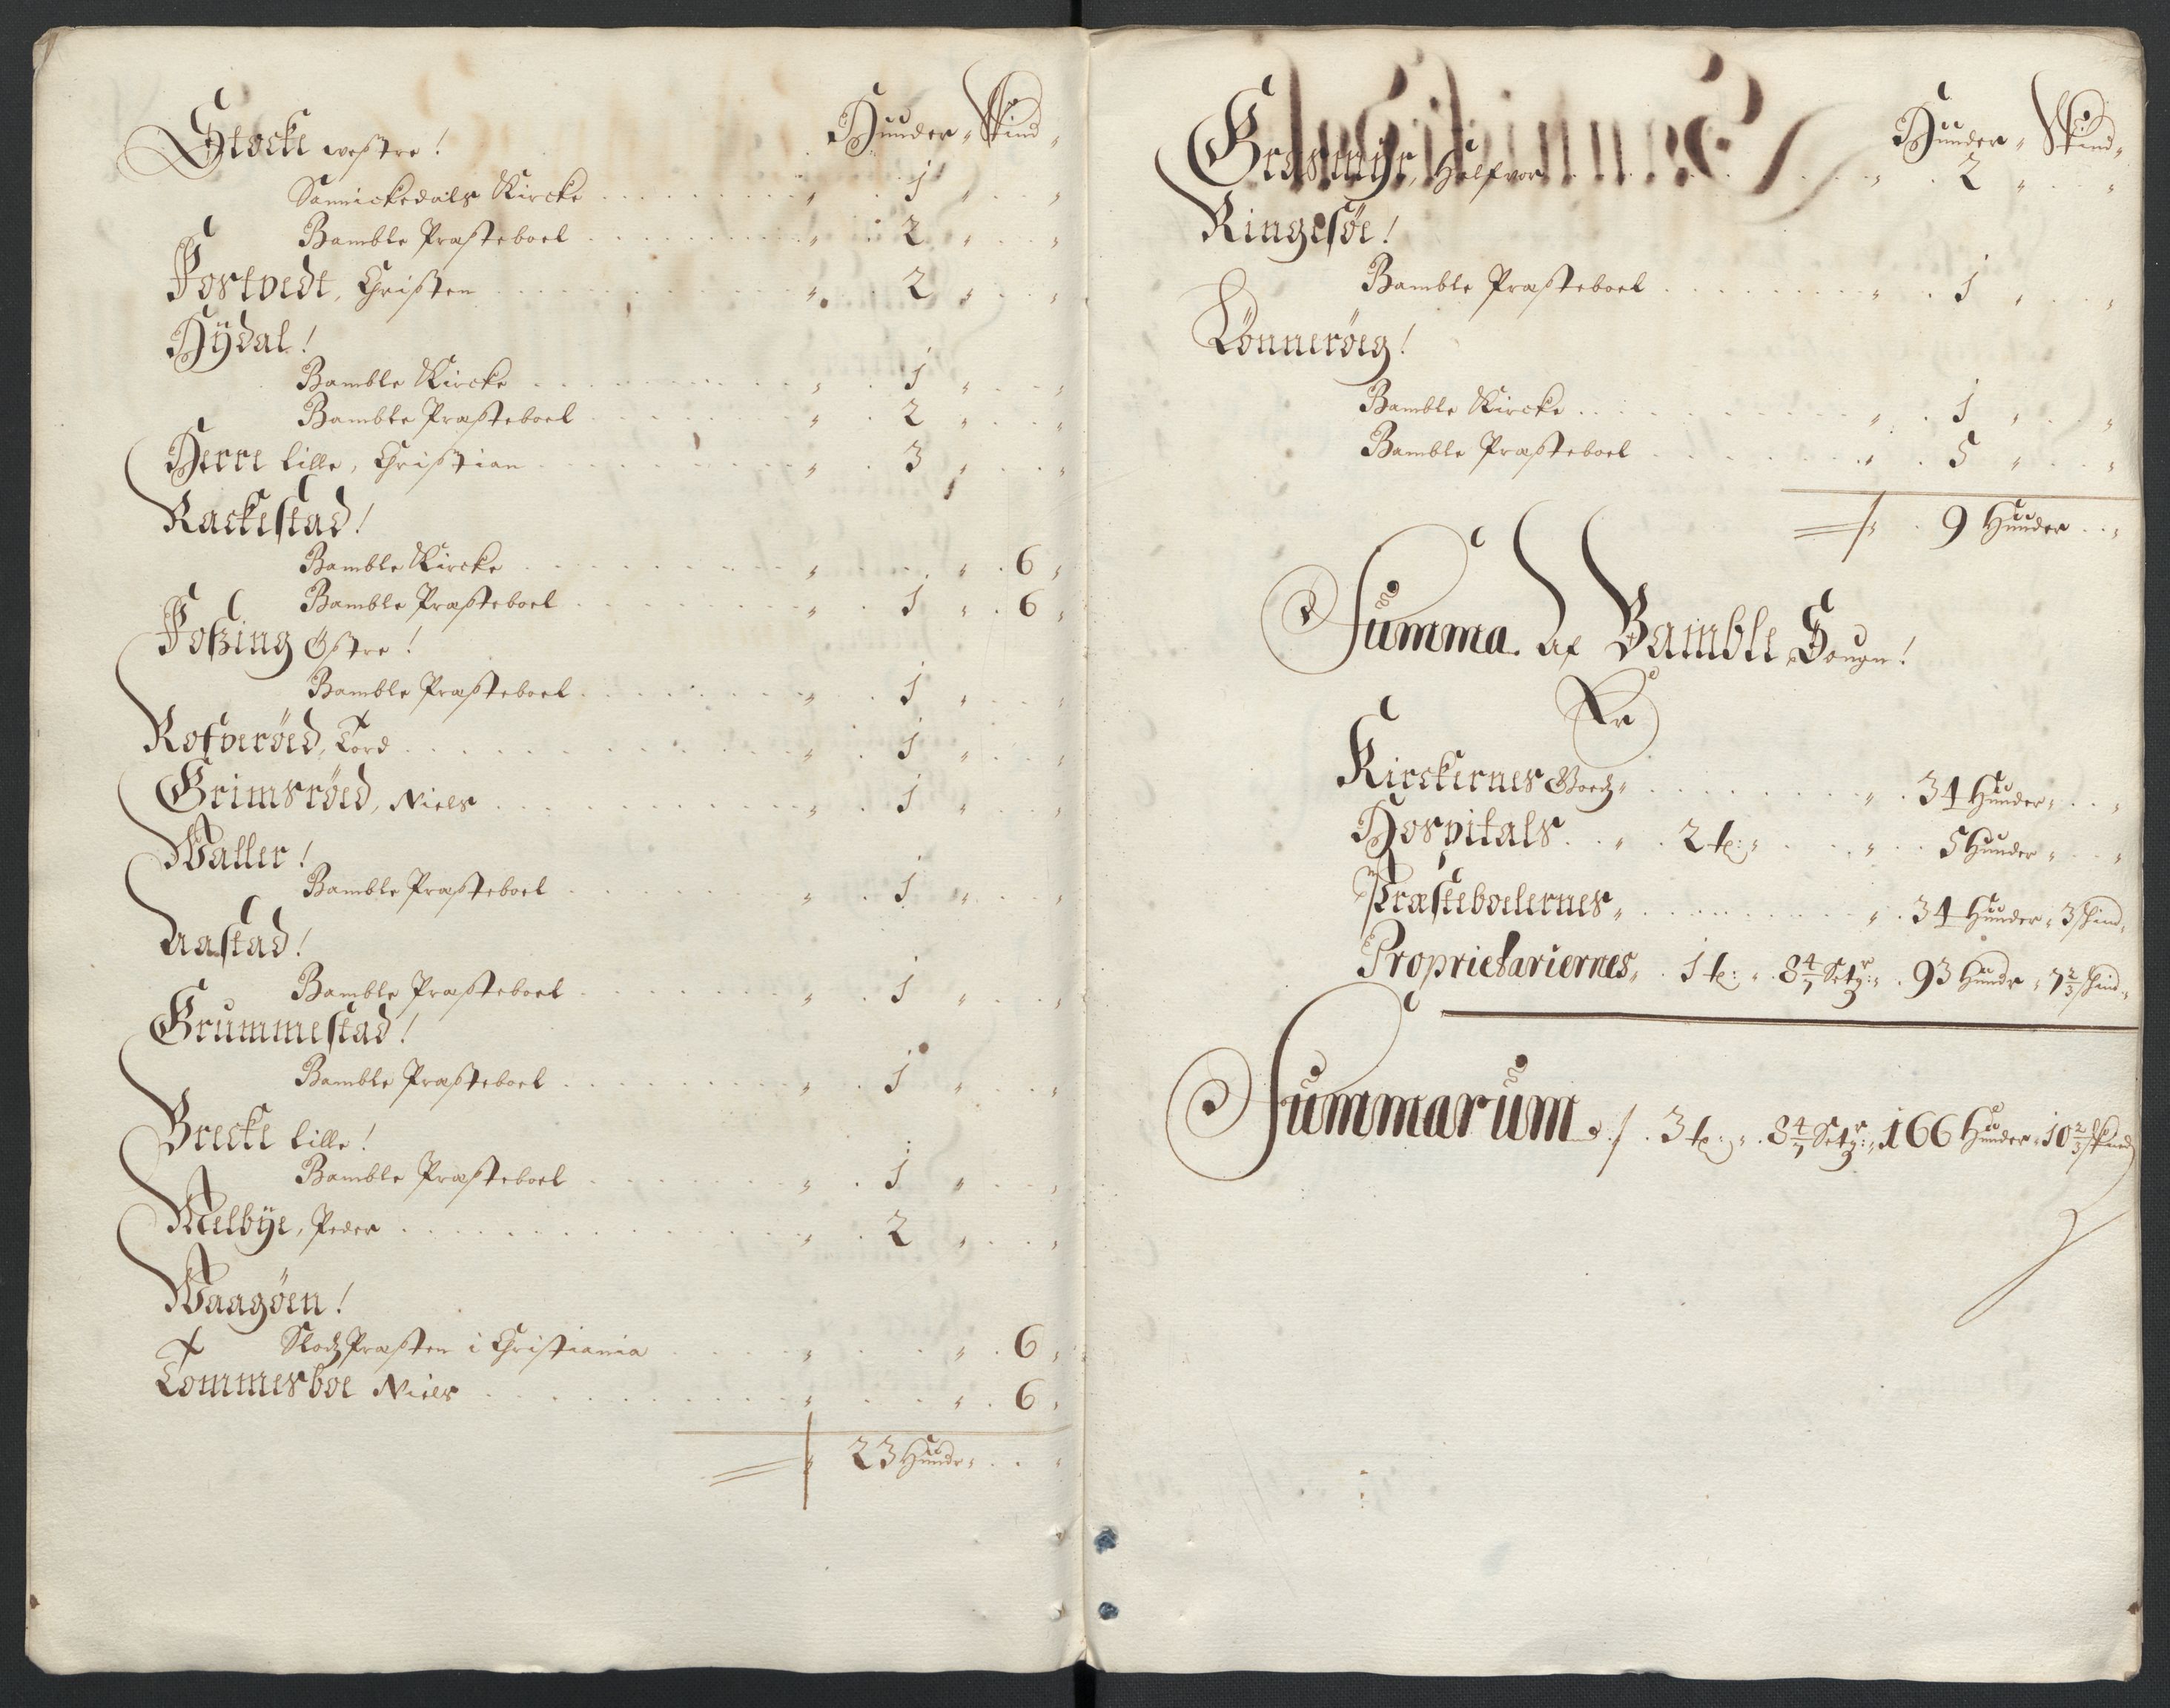 Hunder " Skind "
Stocke westre!
Sannickedals Kircke " 1 " "
Bamble Præsteboel " 2 " "
Fostvedt, Christen " 2 " "
Hÿdal!
Bamble Kircke " 1 " "
Bamble Præsteboel " 2 " "
Herre lille, Christian " 3 " "
Rackestad!
Bamble Kircke " " 6 "
Bamble Præsteboel " 1 " 6 "
Foßing Östre!
Bamble Præsteboel " 1 " "
Rofverøed, Tord " 1 " "
Grimsrøed, Niels " 1 " "
Waller!
Bamble Præsteboel " 1 " "
Aastad!
Bamble Præsteboel " 1 " "
Grummestad!
Bamble Præsteboel " 1 " "
Brecke lille!
Bamble Præsteboel " 1 " "
Melbÿe, Peder " 2 " "
Waagøen!
Slodz Præsten i Christiania " " 6 "
Tommesboe Niels " " 6 "
23 Hundr "
Hunder " Skind "
Grasmyhr, Halfvor " 2 " "
Ringesøe!
Bamble Præsteboel " 1 " "
Lönnerøeg!
Bamble Kircke " 1 " "
Bamble Præsteboel " 5 " "
9 Hunder "
Summa. Af Bamble Sougn!
Er
Kirckernes Goedz " " 34 Hunder " "
Hospitals " 2 t: " " 5 Hunder " "
Præsteboelernes " " 34 Hunder " 3 skind "
Proprietariernes " 1 t: " 8 4/7 Setg: " 93 Hundr " 7 2/3 skind "
Summarum 3 t: " 8 4/7 Setg: " 166 Hunder " 10 2/3 skind